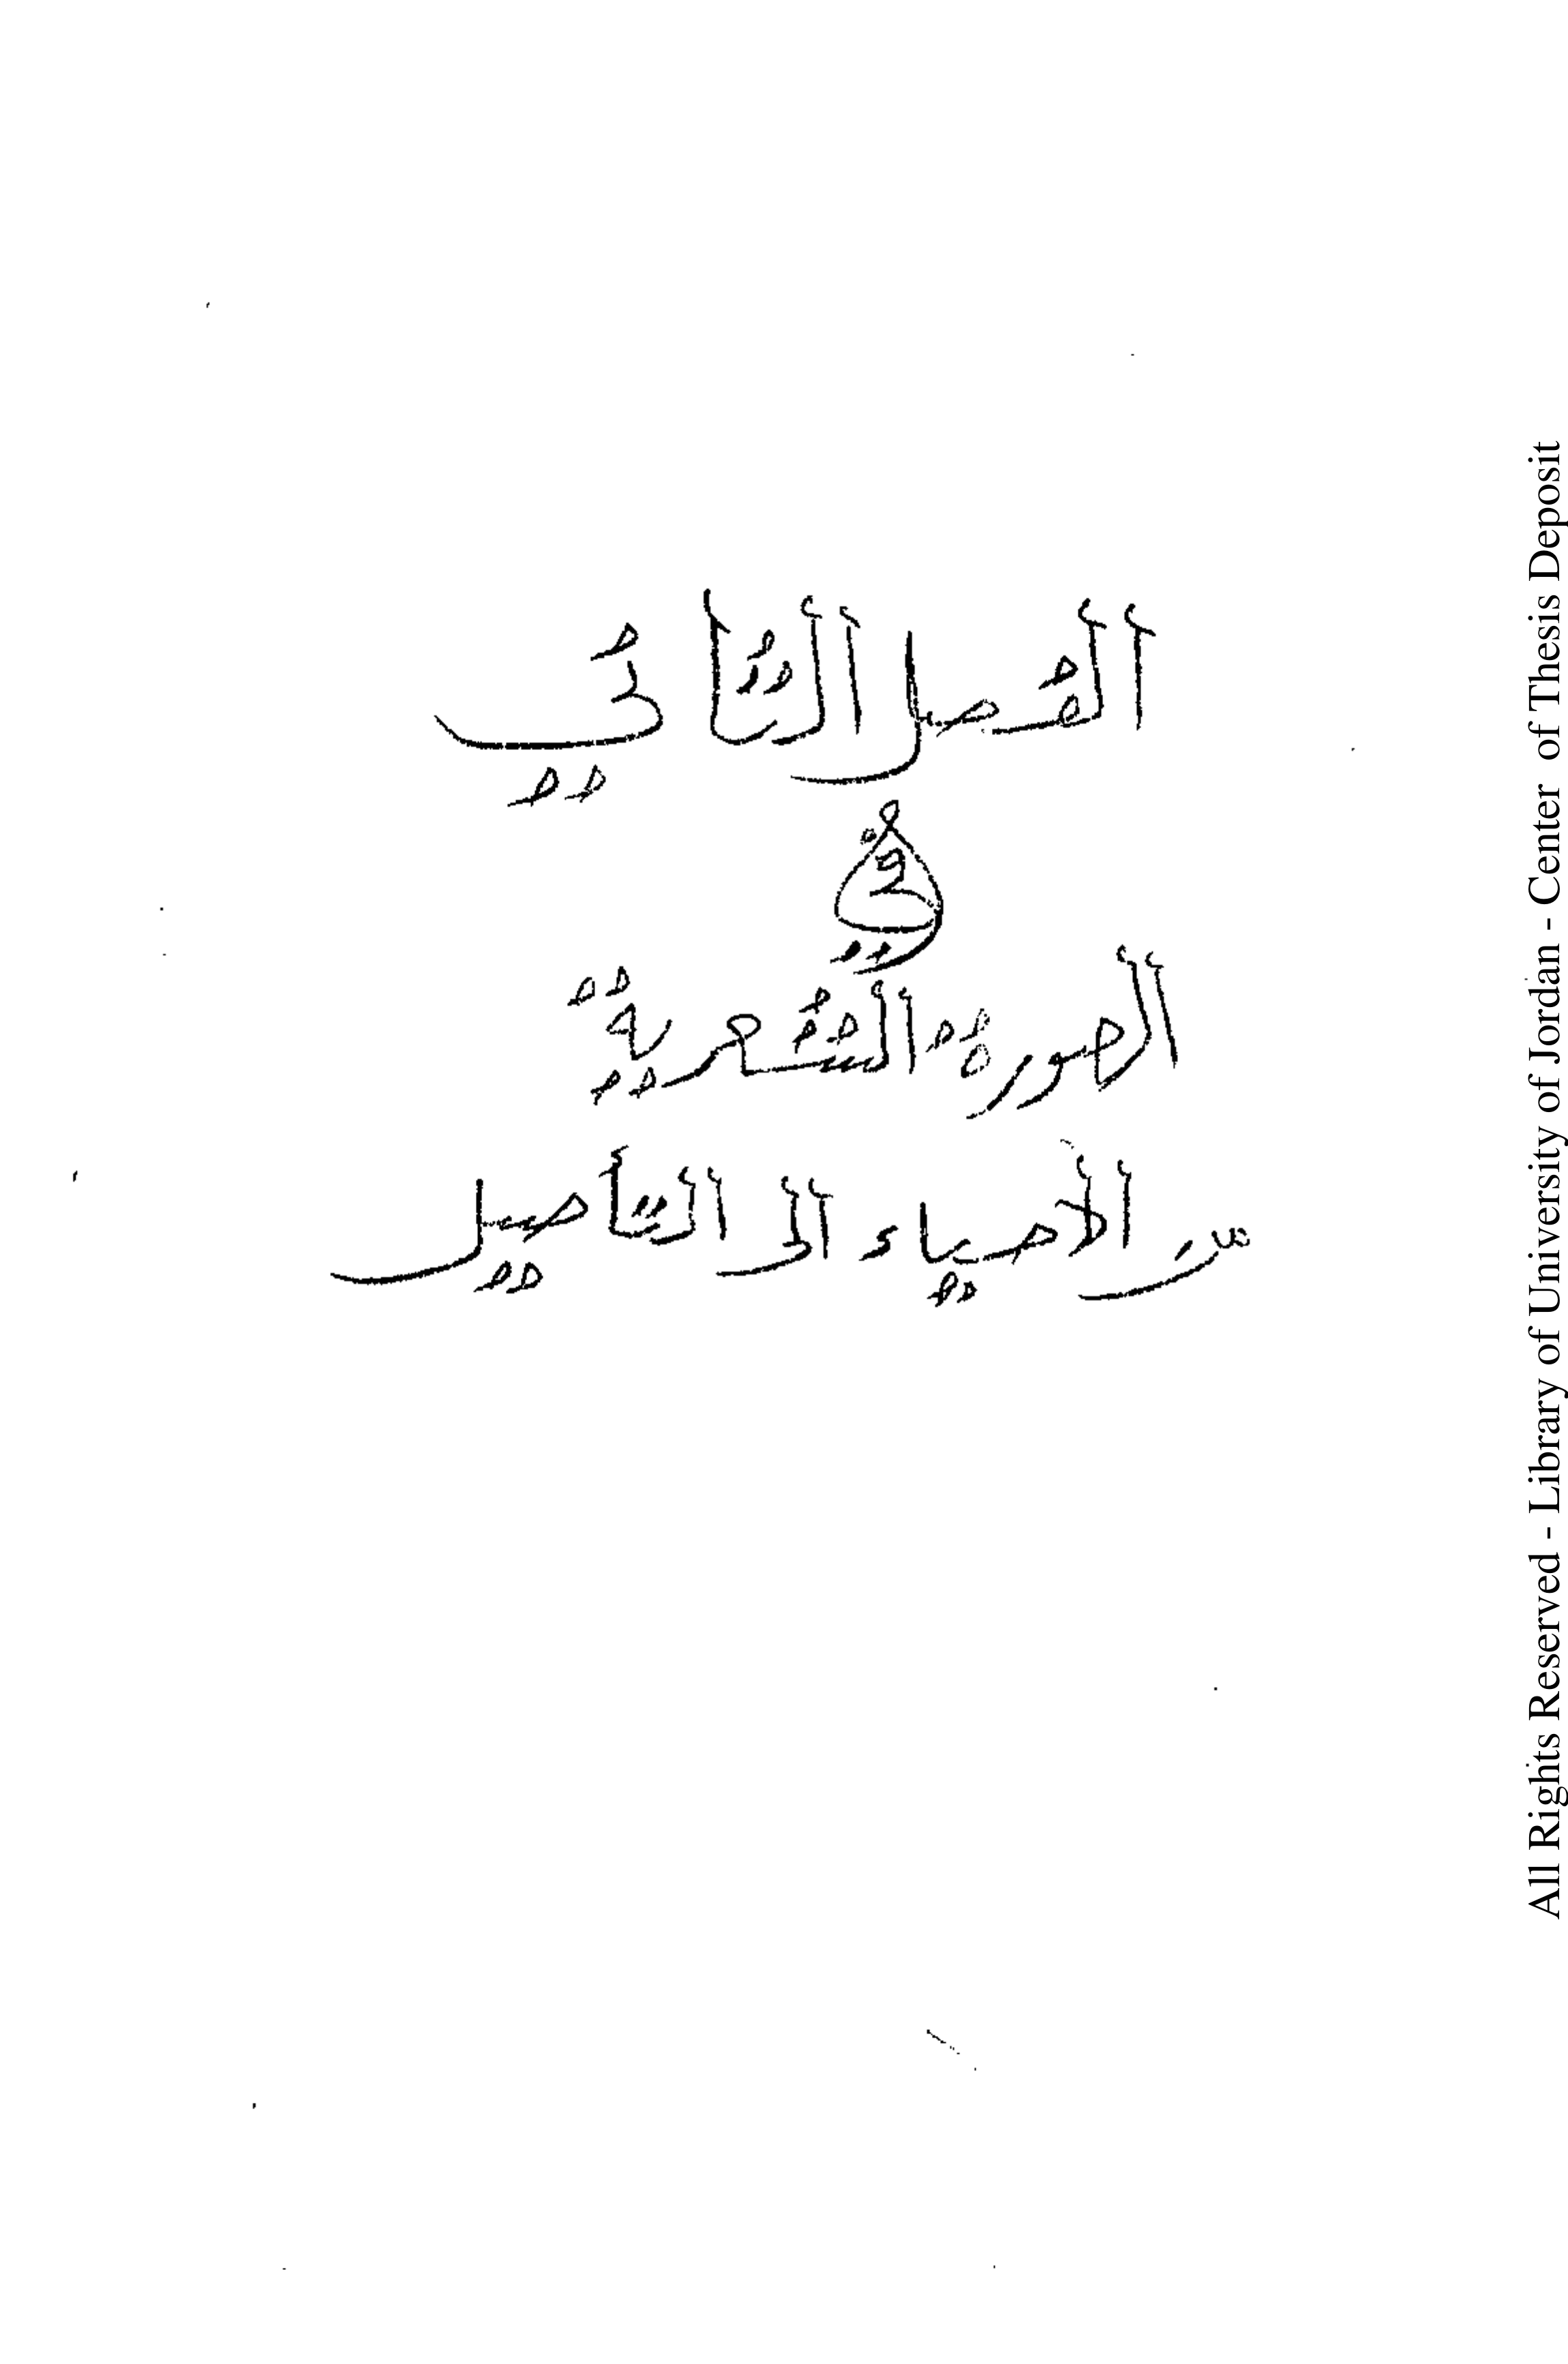 الفصل الثاني
في
الصورة الشعرية
من الأحياء الى التأصيل
All Rights Reserved - Library of University of Jordan - Center of Thesis Deposit